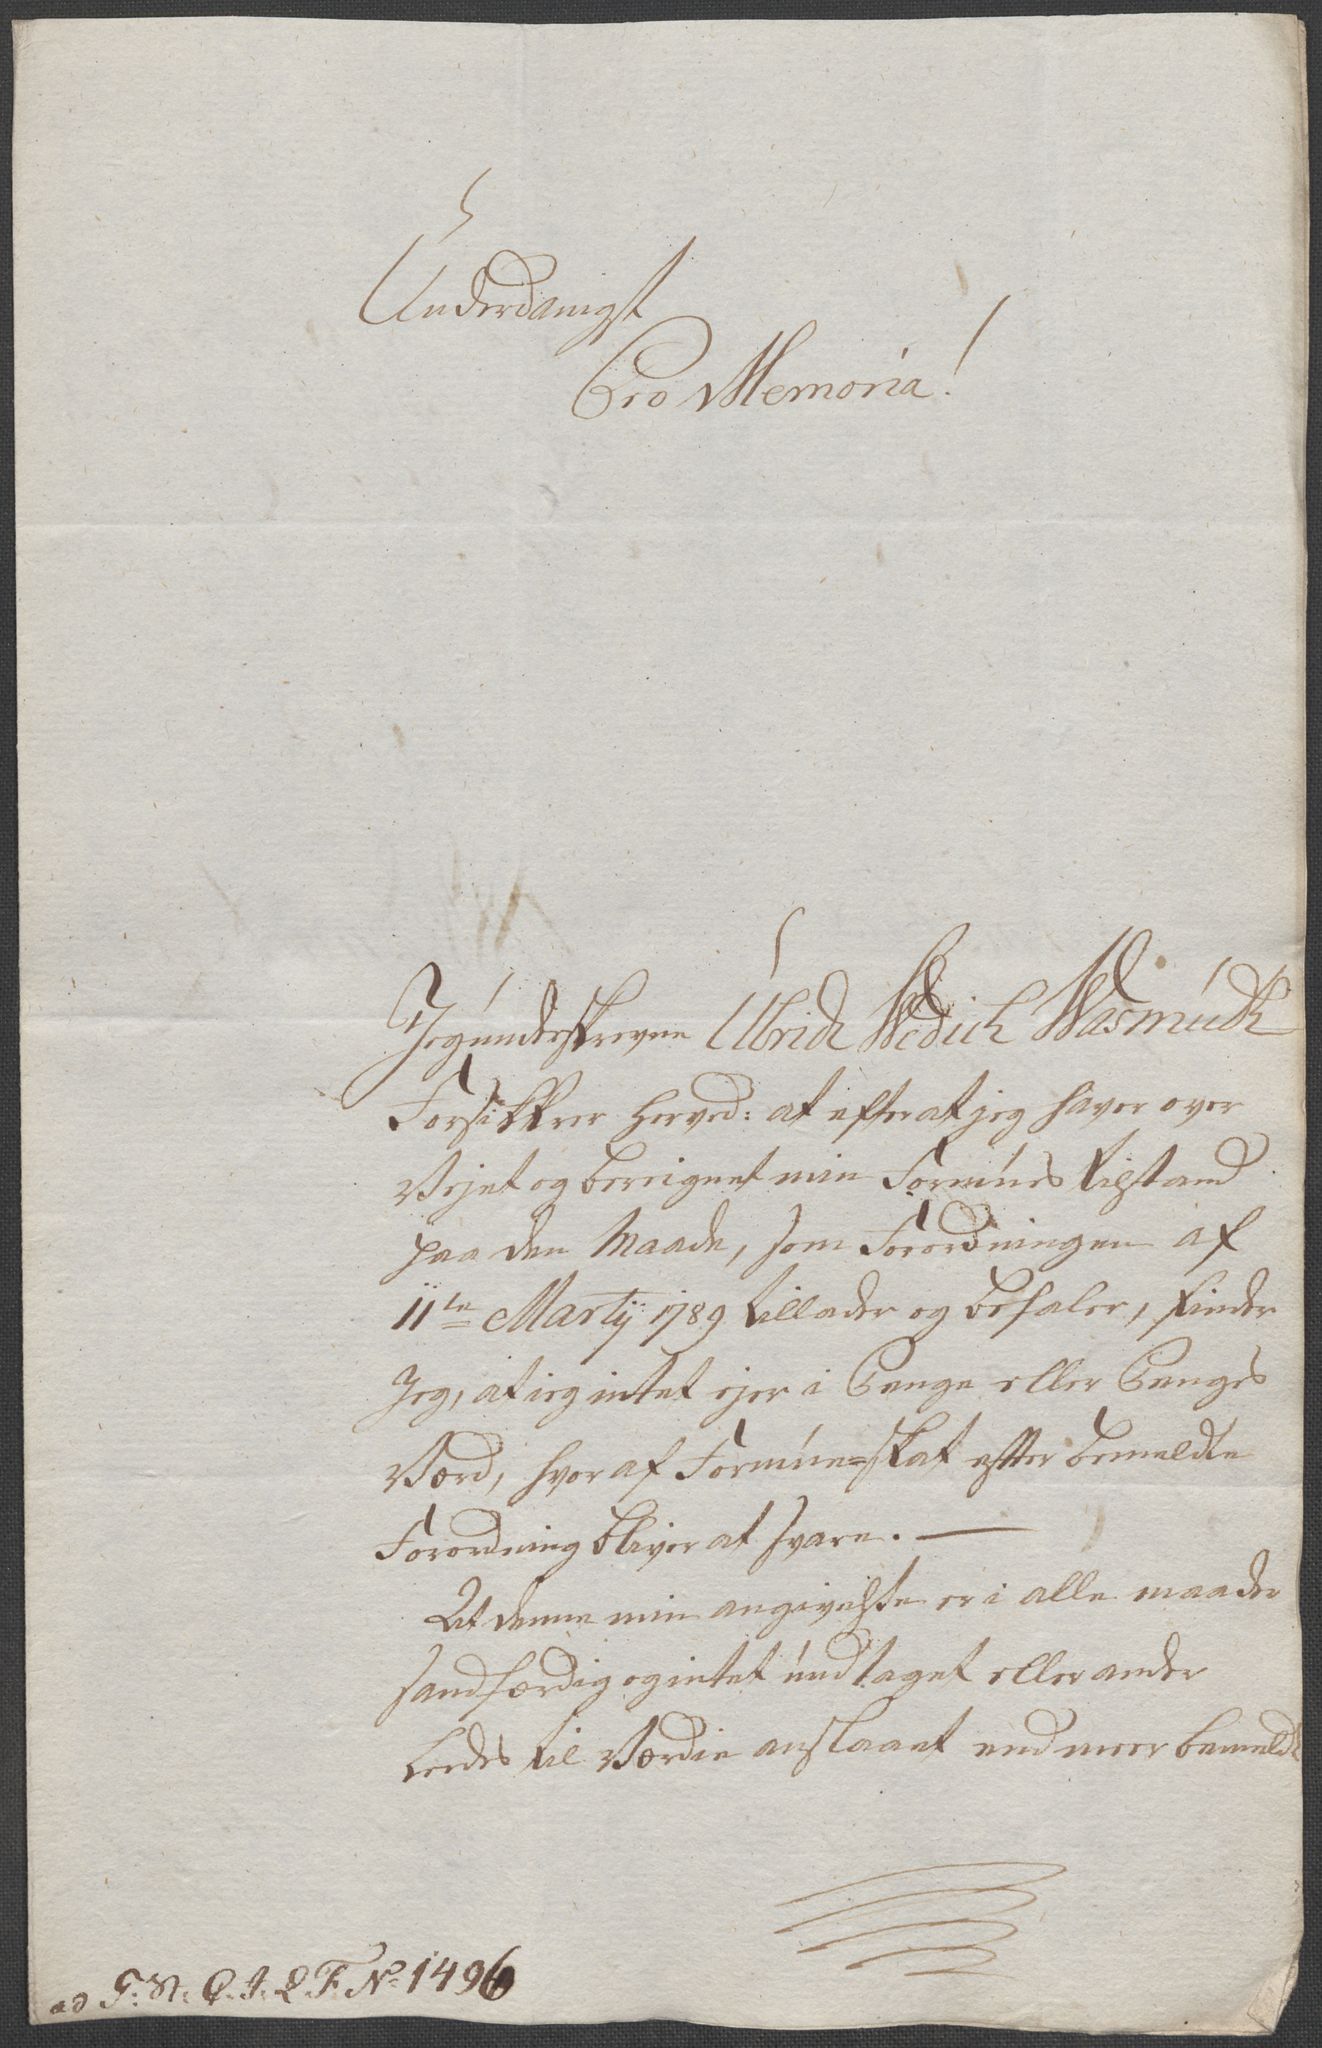 Underdanigst
Pro Memoria!
Jeg underskrevne Ulrich Wedich Wasmuth
Forsikkrer herved: at efter at jeg haver over
Vejet og bereignet min Formues tilstand
paa den Maade, som Forordningen af
11te Martij 1789 tillader og befaler, finder
Jeg, at ieg intet ejer i Penge eller Penges
Værd, hvor af Formue=skat efter bemeldte
Forordning bliver at svare. —
At denne min angivelse er i alle maader
sandfærdig og intet undtaget eller ander
ledes til Værdie anslaaet end meer bemeldt
ad G. St. P. I. L F. No 1496